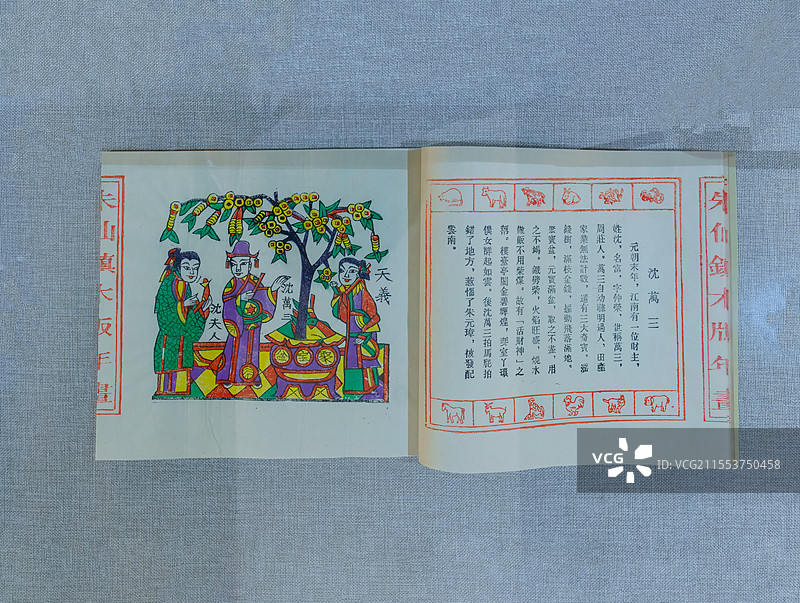 朱仙鎮木版年畫
天義
沈萬三
沈夫人
沈萬三
元朝末年，江南有一位財主，
姓沈，名富，字仲榮，世稱萬三，
周莊人。萬三自幼聰明過人，田產
家業無法計數，還有三大奇寶，搖
錢樹，滿枝金錢，搖動飛落滿地，
聚寶盆，元寶滿盆，取之不盡，用
之不竭，鐵劈柴，火焰旺盛，燒水
做飯不用柴煤，故有「活財神」之
稱。樓臺亭閣金碧輝煌，妻室丫環
僕女群起如雲。後沈萬三拍馬屁拍
錯了地方，惹惱了朱元璋，被發配
雲南。
朱仙鎮木版年畫
VCG
ID:VCG211553750458